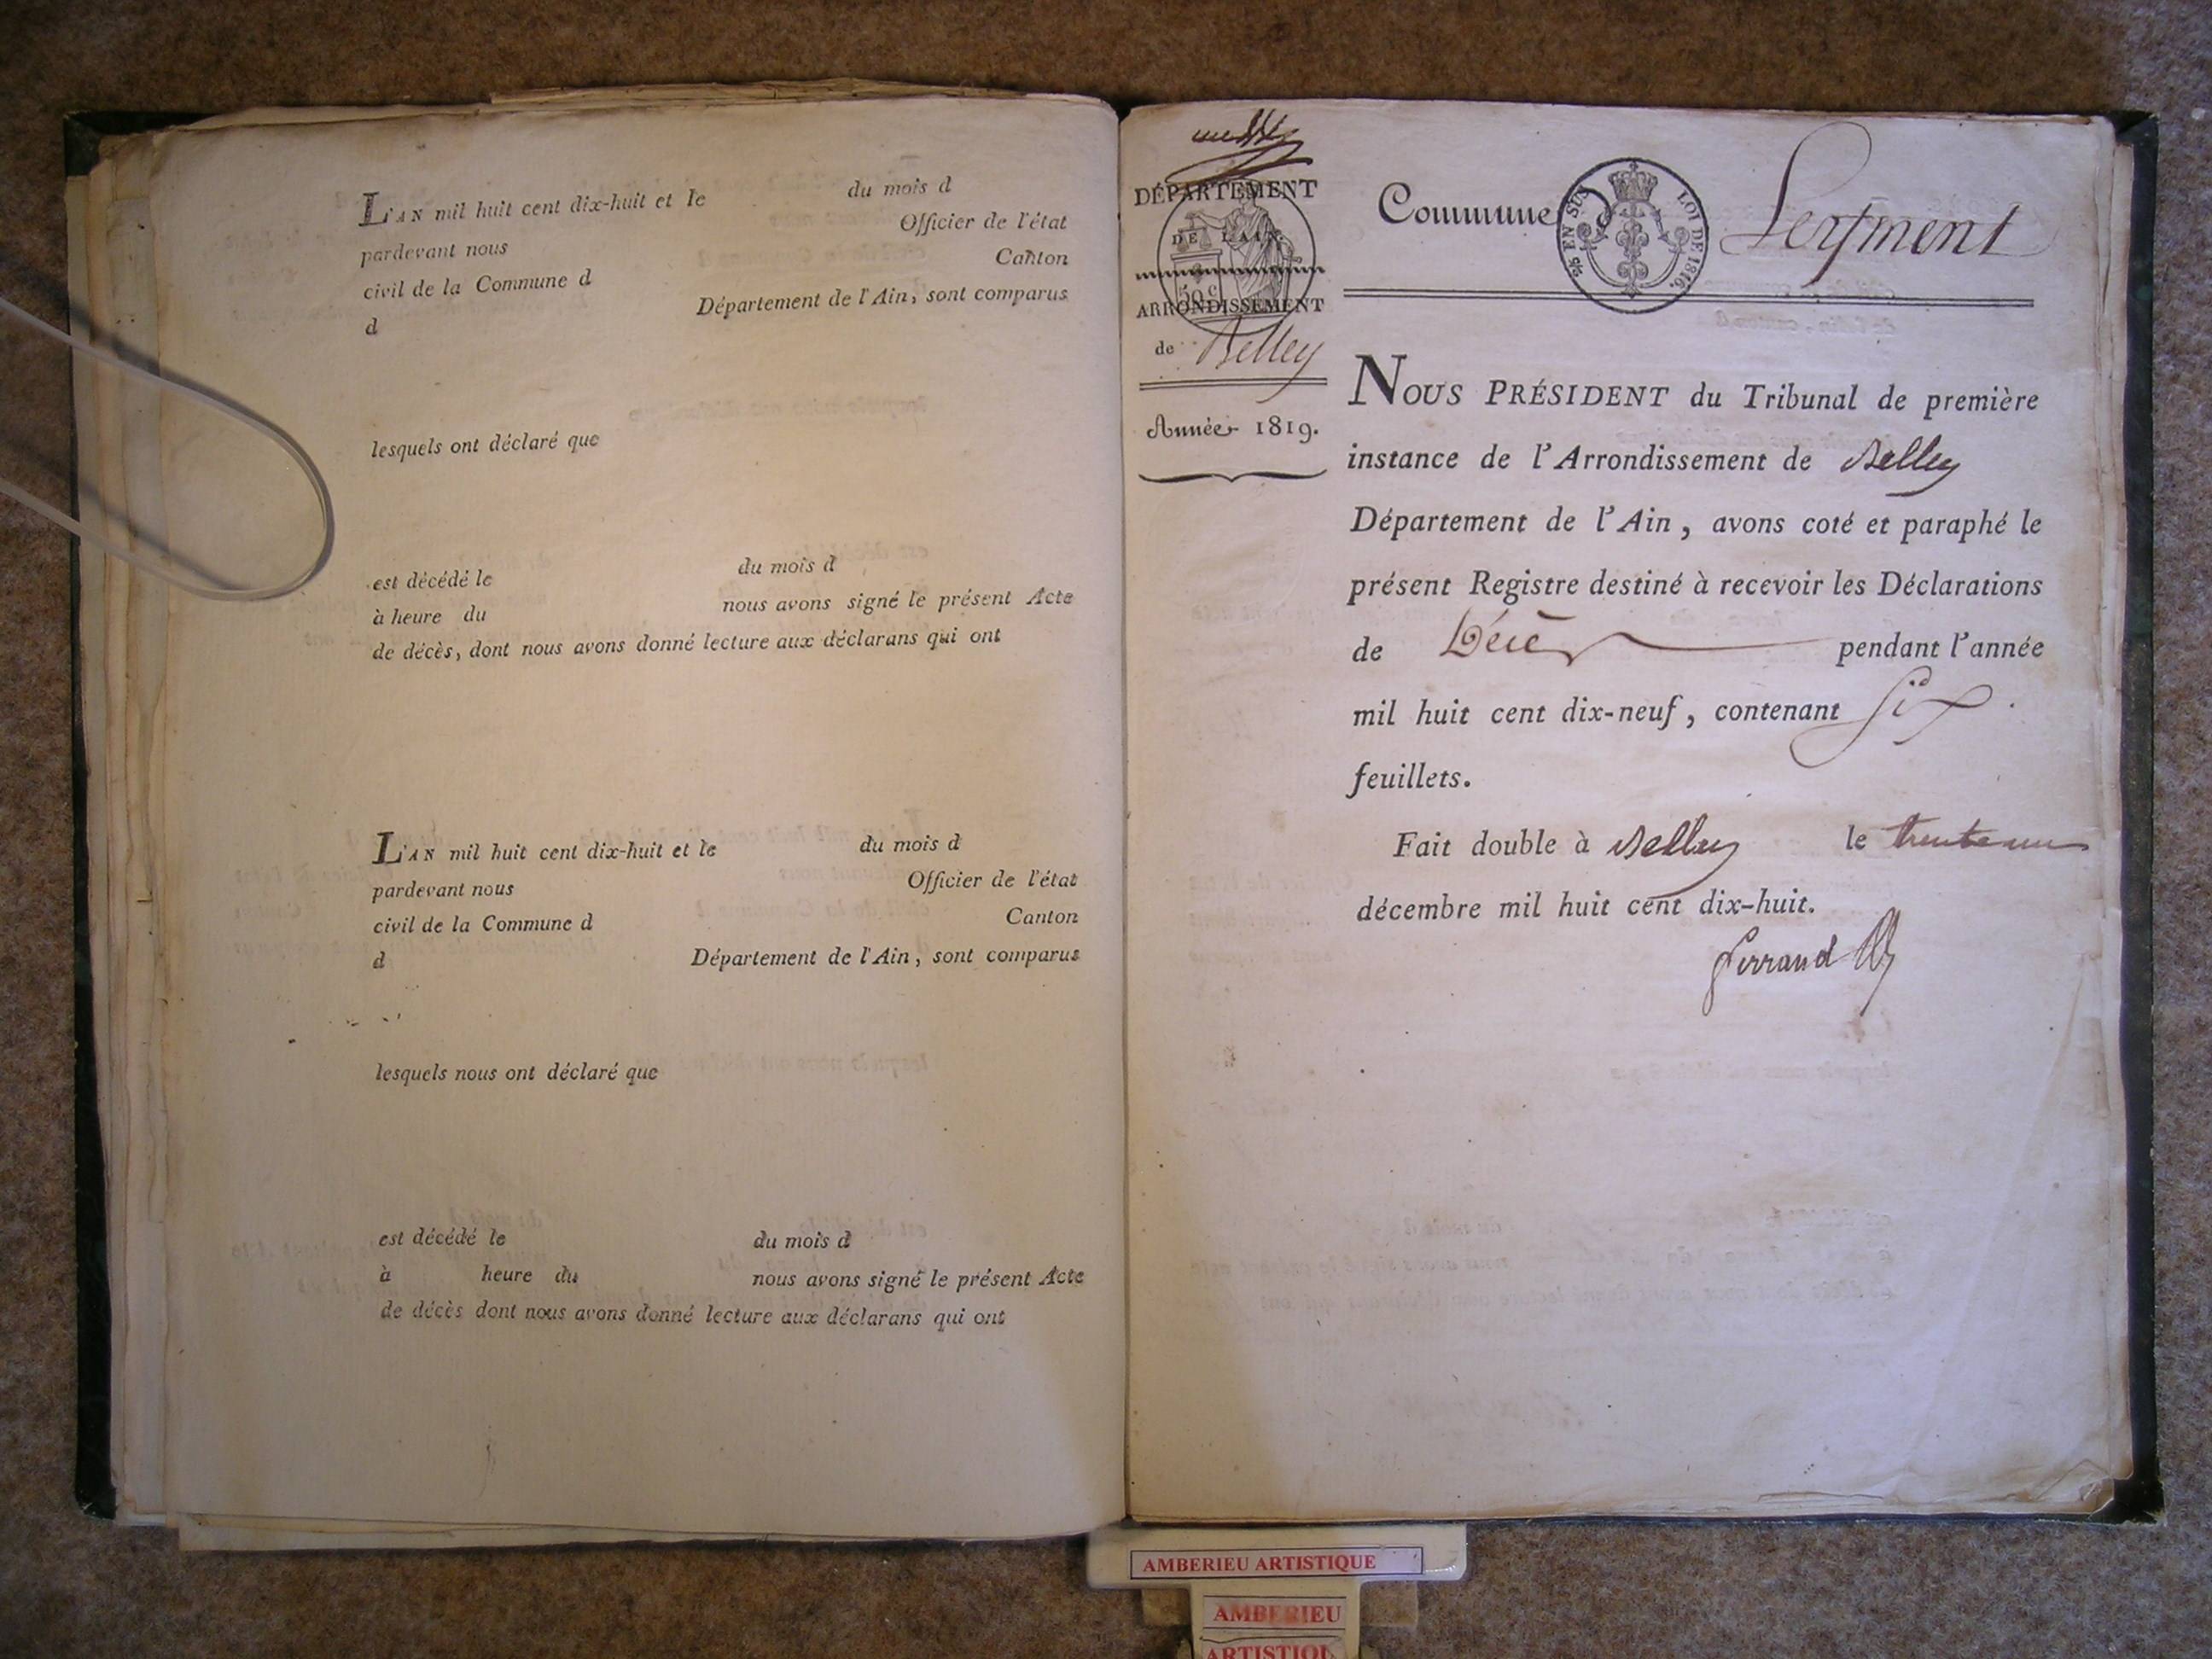 L'AN mil huit cent dix-huit et le du mois d
pardevant nous Officier de l'état
civil de la Commune d Canton
d Département de l'Ain, sont comparus
lesquels ont déclaré que
est décédé le du mois d
à heure du nous avons signé le présent Acte
de décès, dont nous avons donné lecture aux déclarans qui ont
L'AN mil huit cent dix-huit et le du mois d
pardevant nous Officier de l'état
civil de la Commune d Canton
d Département de l'Ain, sont comparus
lesquels nous ont déclaré que
est décédé le du mois d
à heure du nous avons signé le présent Acte
de décès dont nous avons donné lecture aux déclarans qui ont
DÉPARTEMENT
DE L'AIN.
50 c
ARRONDISSEMENT
de Belley
Année 1819.
Commune d Leyment
EN SUS
LOI DE 1816.
NOUS PRÉSIDENT du Tribunal de première
instance de l'Arrondissement de Belley
Département de l'Ain, avons coté et paraphé le
présent Registre destiné à recevoir les Déclarations
de Décès pendant l'année
mil huit cent dix-neuf, contenant Six
feuillets.
Fait double à Belley le trente un
décembre mil huit cent dix-huit.
AMBERIEU ARTISTIQUE
AMBERIEU
ARTISTIQU